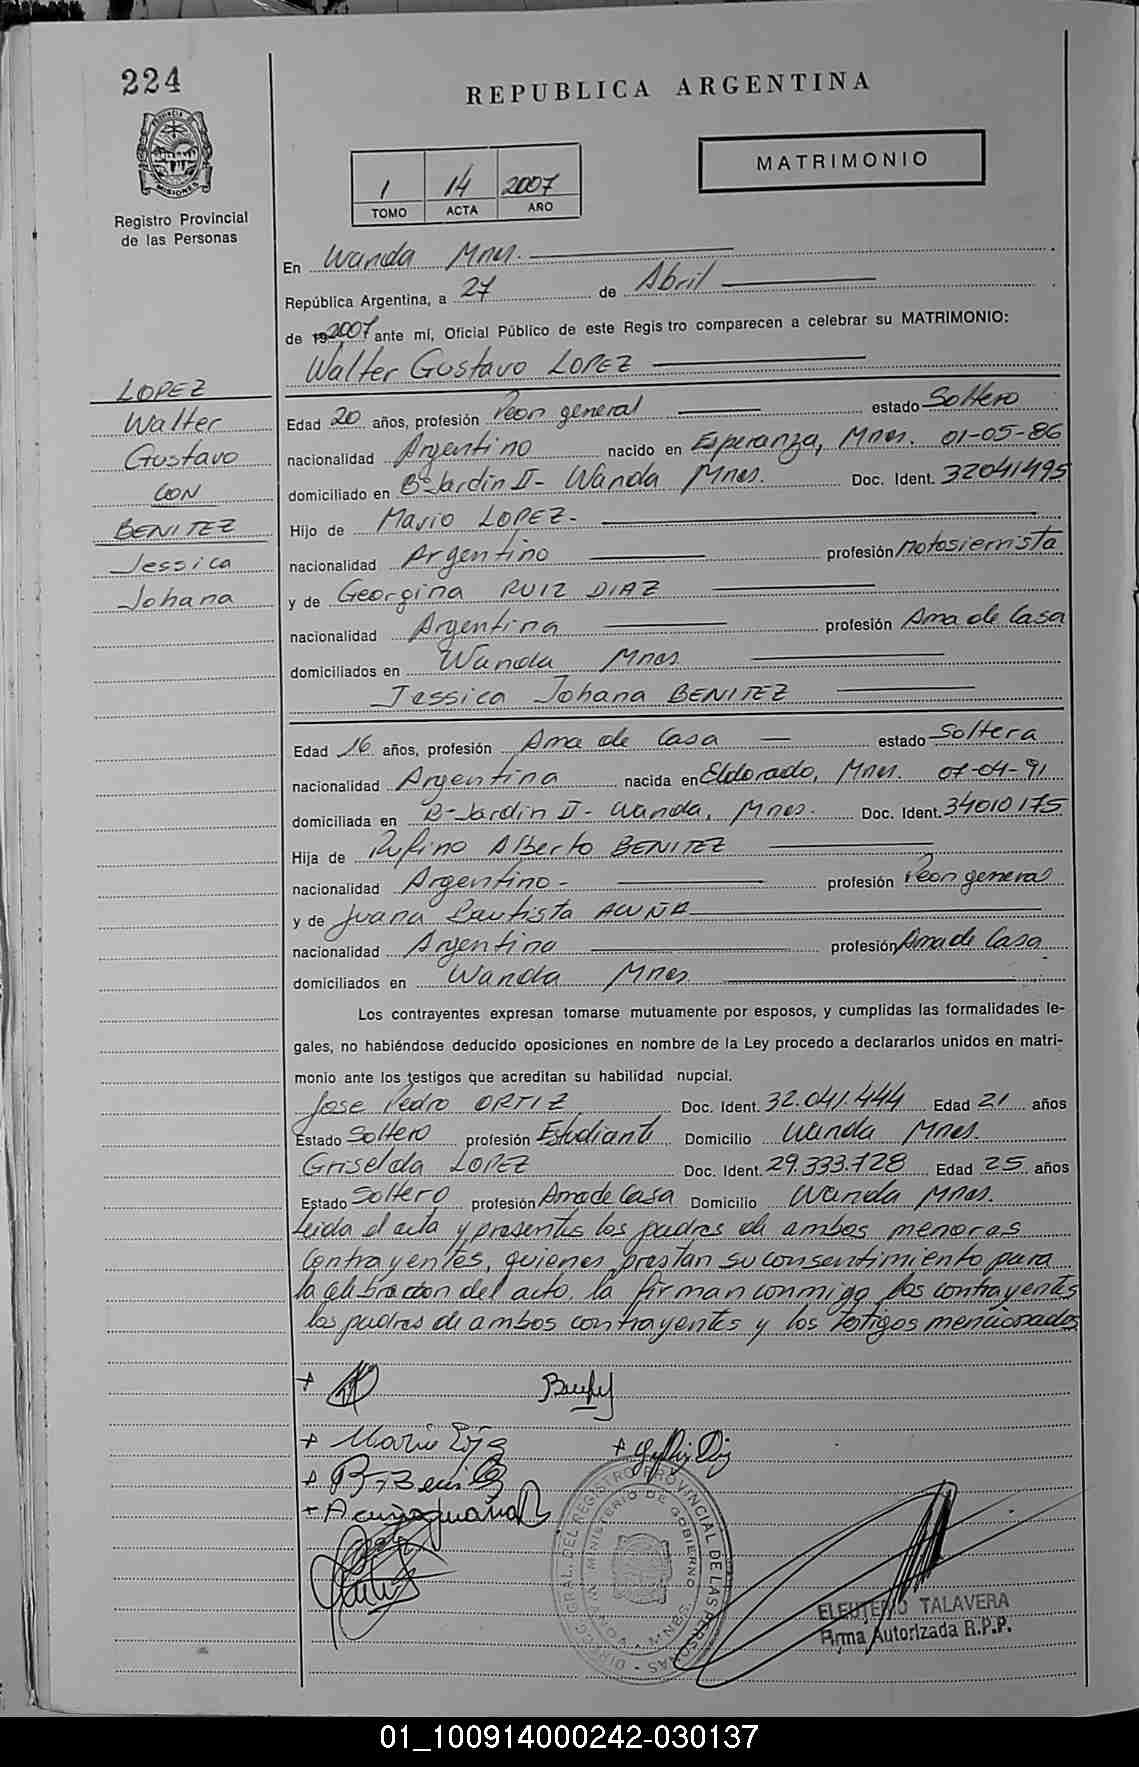 224
REPUBLICA ARGENTINA
PROVINCIA DE
MISIONES
MATRIMONIO
1 14 2007
TOMO ACTA AÑO
Registro Provincial
de las Personas
En Wanda Mnes.
República Argentina, a 27 de Abril
de 19 2007 ante mí, Oficial Público de este Regis tro comparecen a celebrar su MATRIMONIO:
Walter Gustavo LOPEZ
LOPEZ
Walter
Gustavo
CON
BENITEZ
Jessica
Johana
Edad 20 años, profesión Peon general estado Soltero
nacionalidad Argentino nacido en Esperanza, Mnes. 01-05-86
domiciliado en Bº Jardin II - Wanda Mnes. Doc. Ident. 32041495
Hijo de Mario LOPEZ-
nacionalidad Argentino profesión motosierrista
y de Georgina RUIZ DIAZ
nacionalidad Argentina profesión Ama de Casa
domiciliados en Wanda Mnes
Jessica Johana BENITEZ
Edad 16 años, profesión Ama de Casa estado Soltera
nacionalidad Argentina nacida en Eldorado, Mnes. 07-04-91
domiciliada en Bº Jardin II - Wanda, Mnes. Doc. Ident. 34010175
Hija de Rufino Alberto BENITEZ
nacionalidad Argentino - profesión Peon general
y de Juana Bautista ACUÑA
nacionalidad Argentina profesión Ama de Casa
domiciliados en Wanda Mnes
Los contrayentes expresan tomarse mutuamente por esposos, y cumplidas las formalidades le-
gales, no habiéndose deducido oposiciones en nombre de la Ley procedo a declararlos unidos en matri-
monio ante los testigos que acreditan su habilidad nupcial.
Jose Pedro ORTIZ Doc. Ident. 32.041.444 Edad 21 años
Estado Soltero profesión Estudiante Domicilio Wanda Mnes.
Griselda LOPEZ Doc. Ident. 29.333.728 Edad 25 años
Estado Soltero profesión Ama de Casa Domicilio Wanda Mnes.
Leida el acta y presentes los padres de ambos menores
contrayentes, quienes prestan su consentimiento para
la celebracion del acto, la firman conmigo los contrayentes
los padres de ambos contrayentes y los testigos mencionados
DIREC. GRAL. DEL REGISTRO PROVINCIAL DE LAS PERSONAS
MINISTERIO DE GOBIERNO
ELEUTERIO TALAVERA
Firma Autorizada R.P.P.
01_100914000242-030137